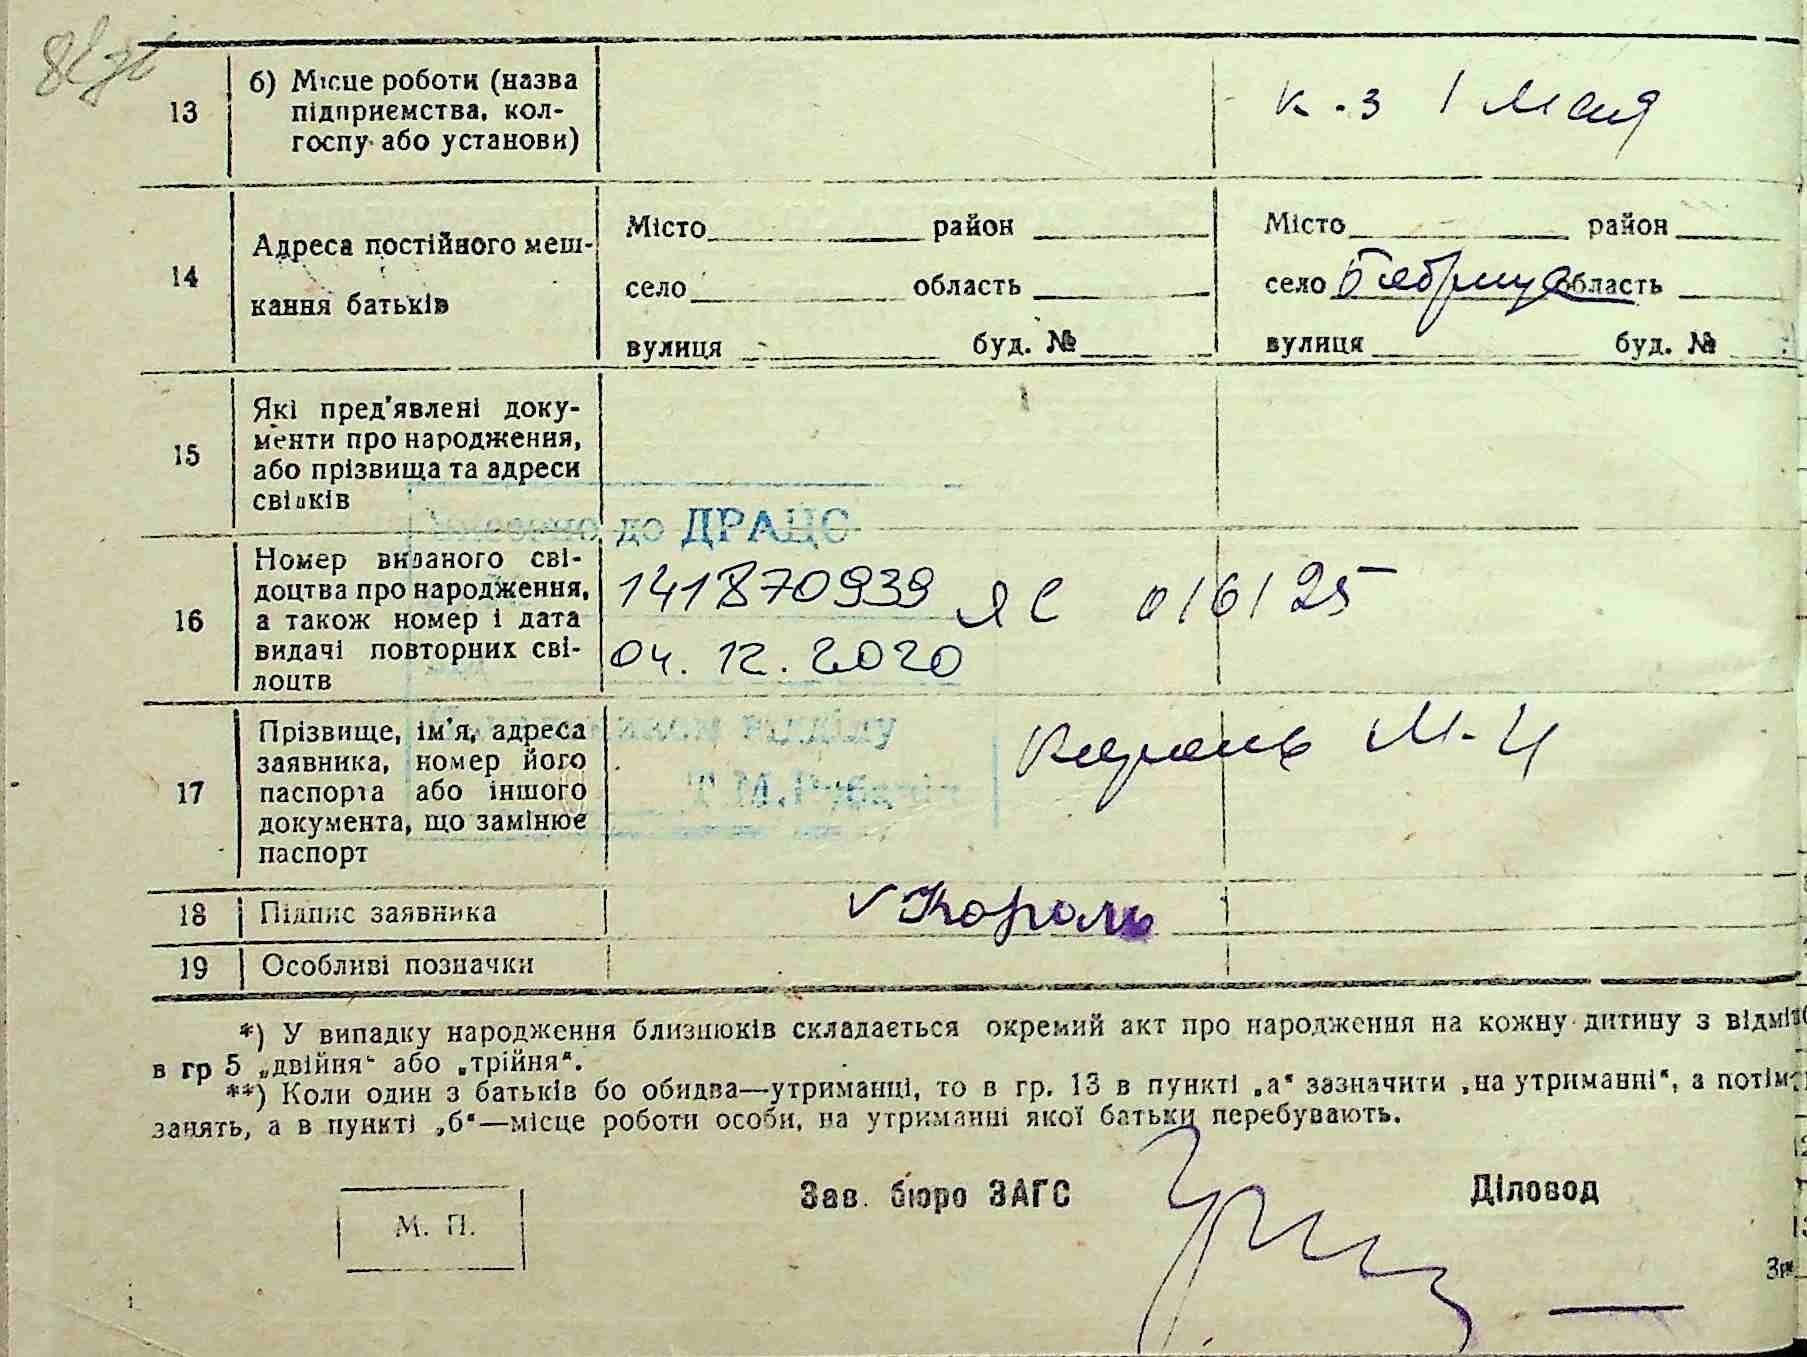 13
б) Місце роботи (назва
підприємства, кол-
госпу або установи)
к-з 1 Мая
14
Адреса постійного меш-
кання батьків
Місто район
село область
вулиця буд. №
Місто район
село область
вулиця буд. №
15
Які пред'явлені доку-
менти про народження,
або прізвища та адреси
свідків
до ДРАЦС
16
Номер виданого сві-
доцтва про народження,
а також номер і дата
видачі повторних сві-
доцтв
141870939
04.12.2020
ЯС 016125
17
Прізвище, ім'я, адреса
заявника, номер його
паспорта або іншого
документа, що замінює
паспорт
відділу
Т.М.
Король М. И
18
Підпис заявника
v Король
19
Особливі позначки
*) У випадку народження близнюків складається окремий акт про народження на кожну дитину з відміт
в гр 5 „двійня“ або „трійня“.
**) Коли один з батьків бо обидва—утриманці, то в гр. 13 в пункті „а“ зазначити „на утриманні“, а потім
занять, а в пункті „б“—місце роботи особи, на утриманні якої батьки перебувають.
М. П.
Зав. бюро ЗАГС
Діловод